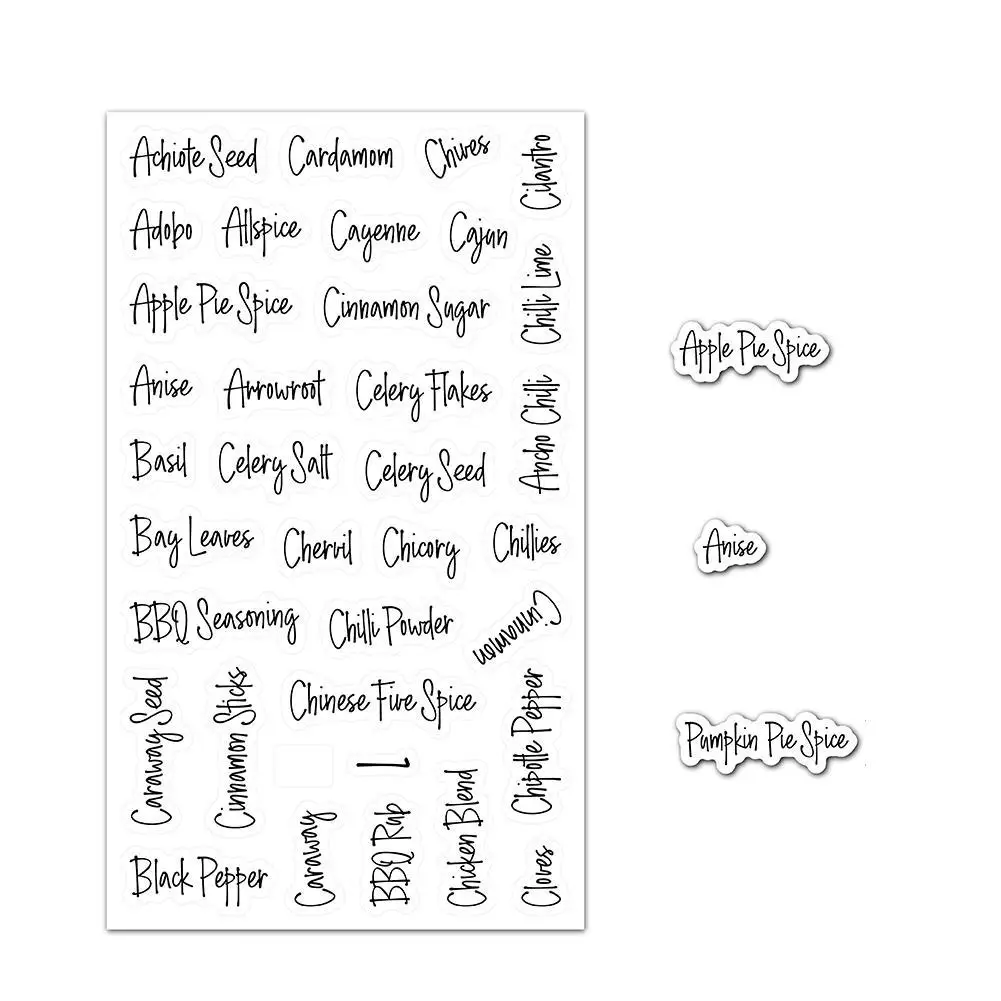 Achiote Seed Cardamom Chives
Cilantro
Adobo Allspice Cayenne Cajun
Chilli Lime
Apple Pie Spice Cinnamon Sugar
Anise Arrowroot Celery Flakes
Ancho Chilli
Basil Celery Salt Celery Seed
Bay Leaves Chervil Chicory Chillies
BBQ Seasoning Chilli Powder
Cinnamon
Caraway Seed
Cinnamon Sticks
Chinese Five Spice
Chipotle Pepper
1
Caraway
BBQ Rub
Chicken Blend
Cloves
Black Pepper
Apple Pie Spice
Anise
Pumpkin Pie Spice